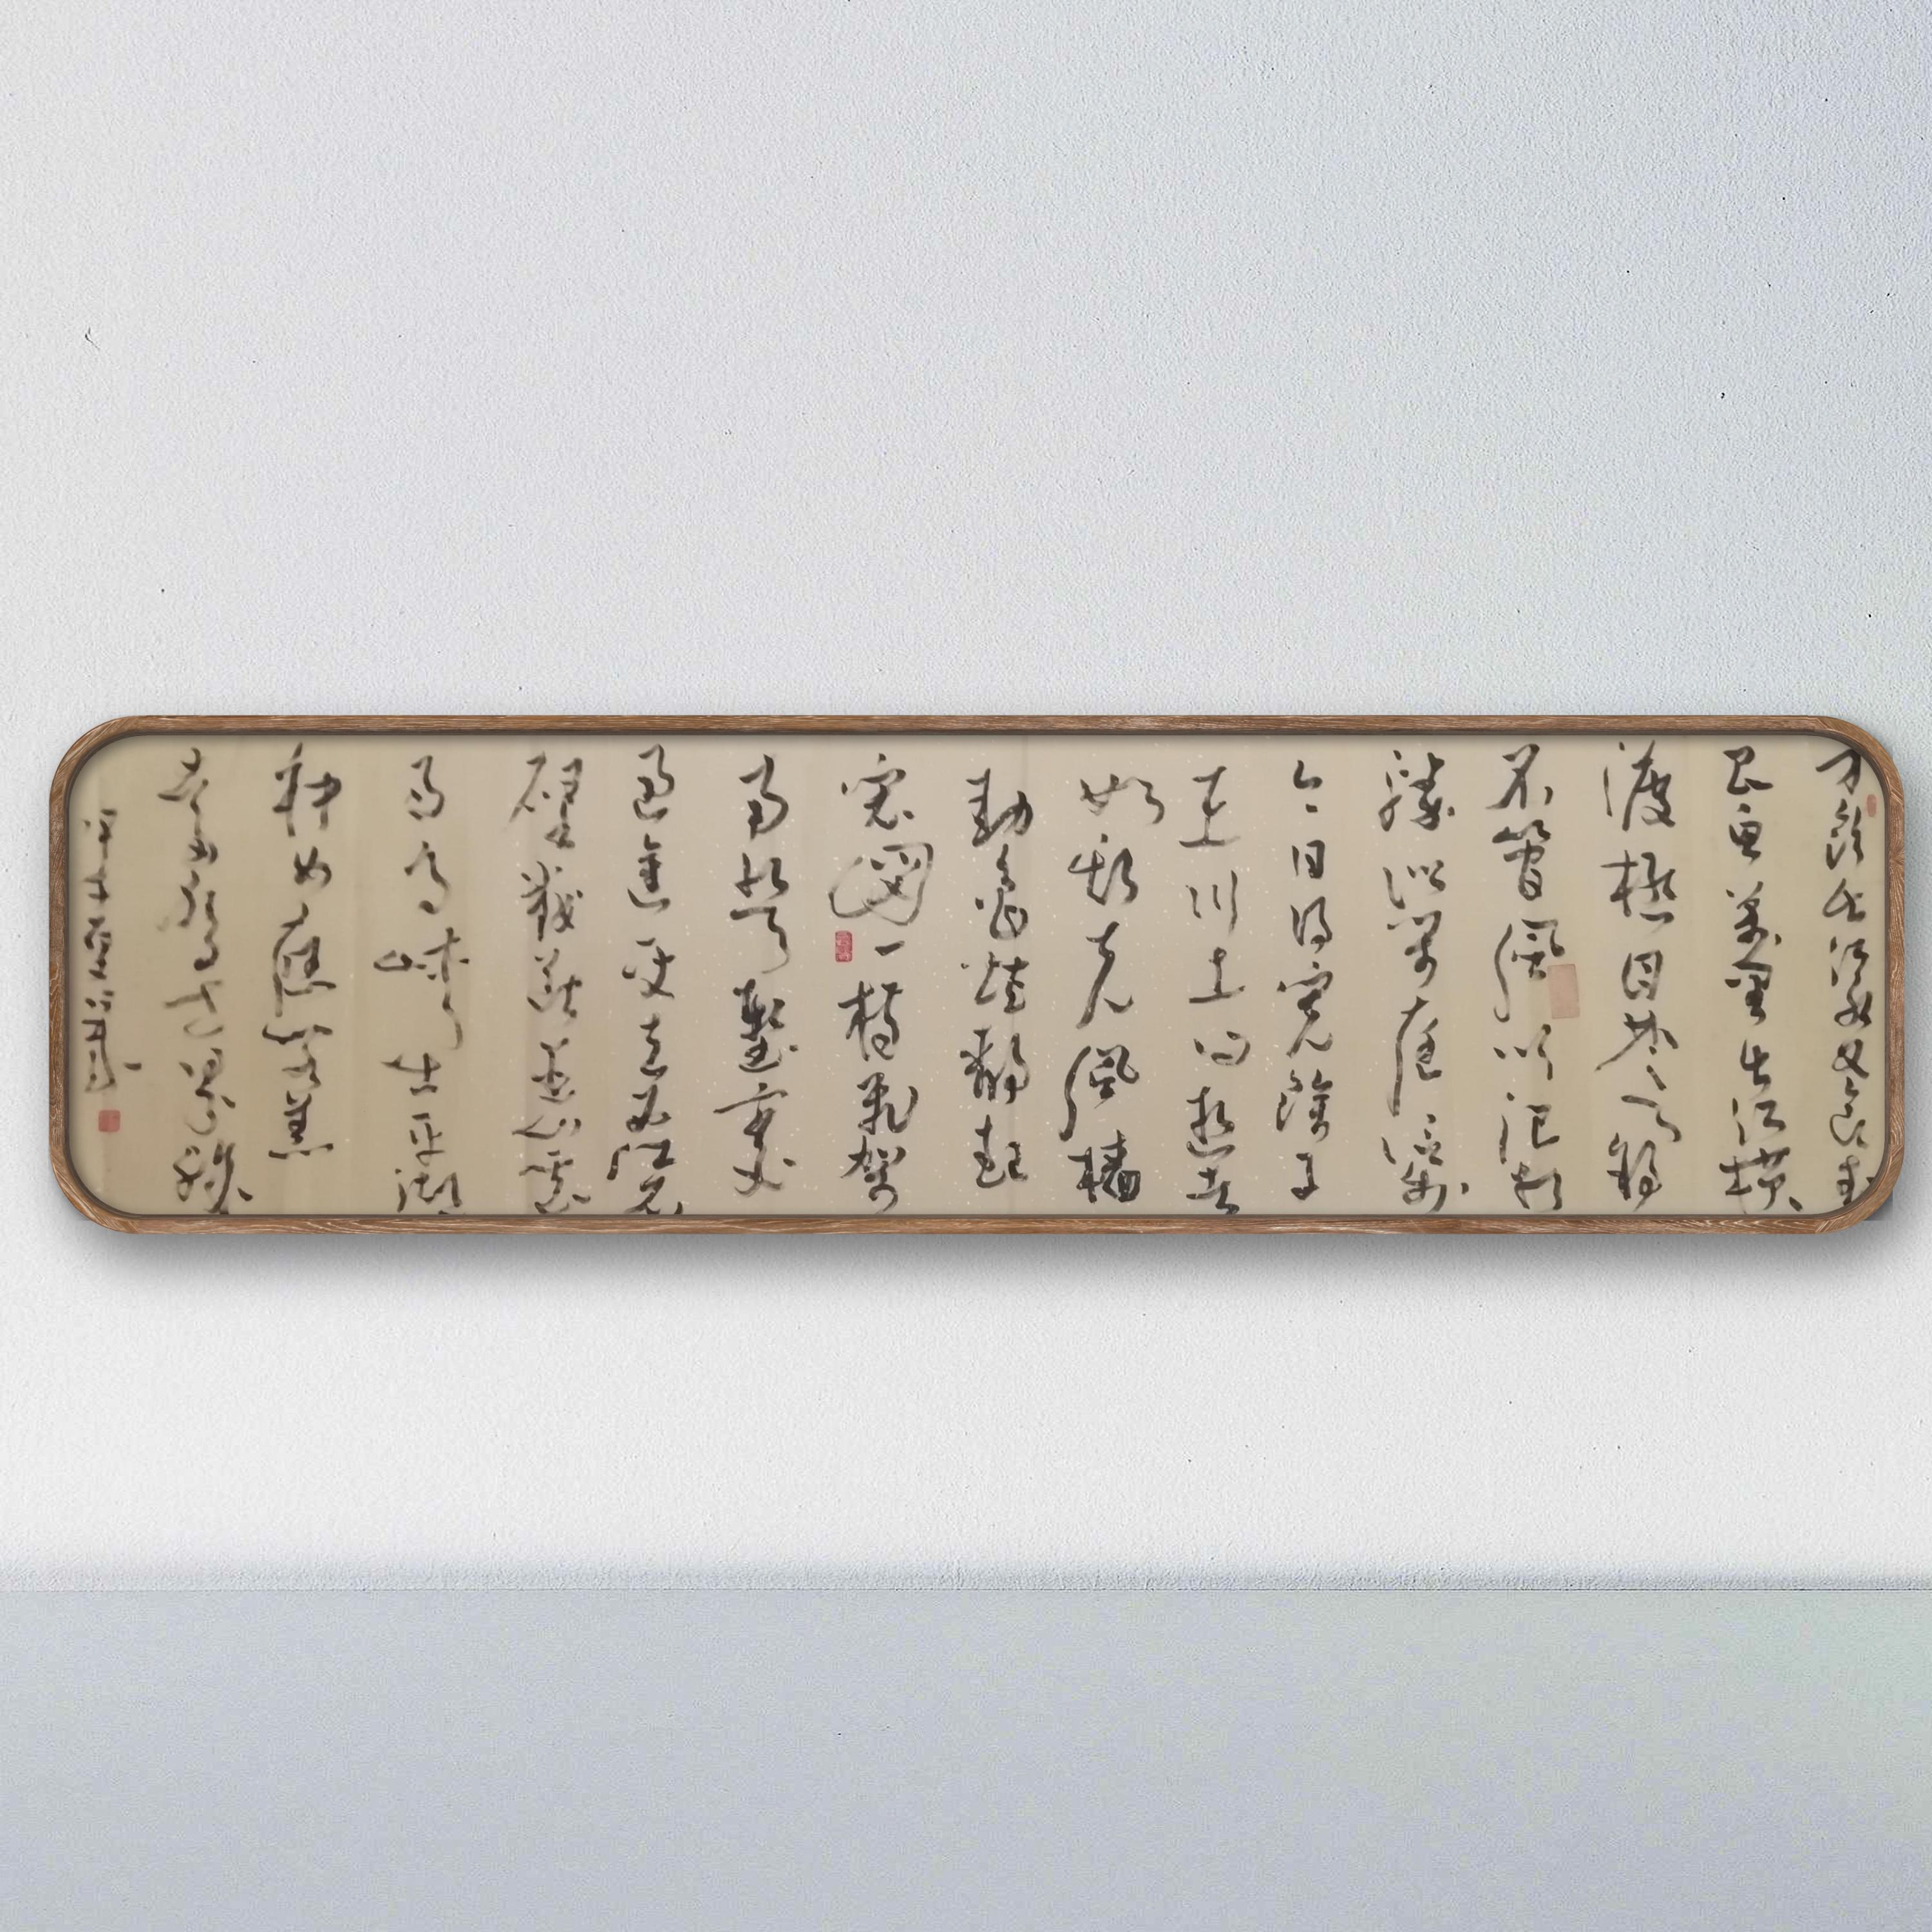 才飲長沙水又食武
昌魚萬里長江橫
渡極目楚天舒
不管風吹浪打
勝似閒庭信步
今日得寬餘子
在川上曰逝者
如斯夫風檣
動龜蛇靜起
宏圖一橋飛架
南北天塹變
通途更立西江石
壁截斷巫山雲
雨高峽出平湖
神女應無恙
當驚世界殊